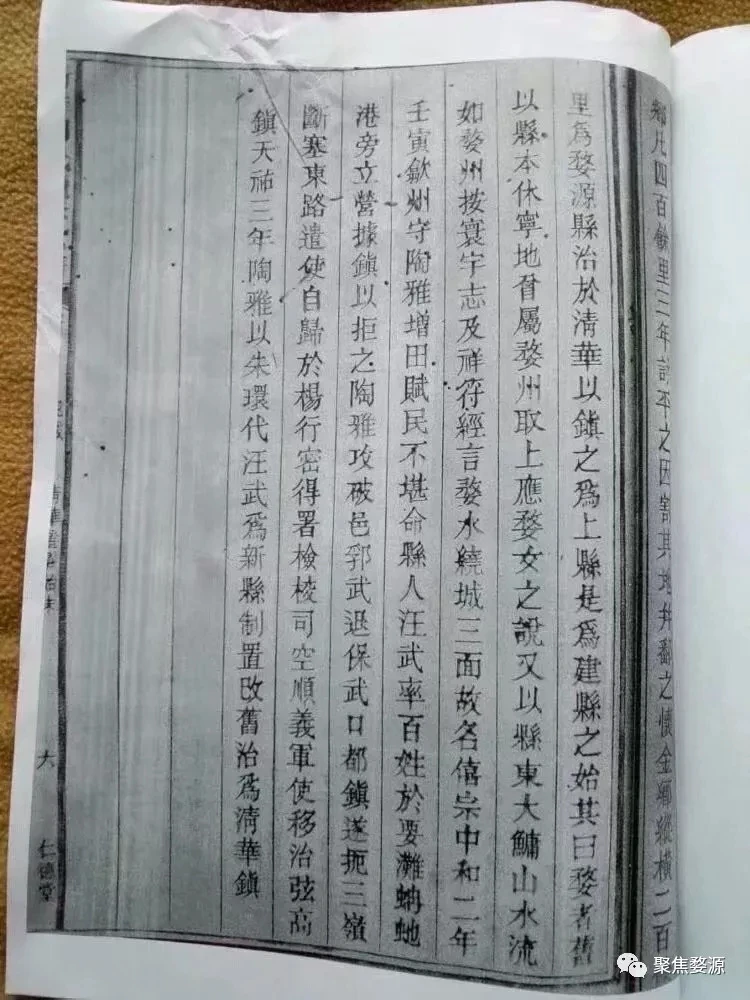 鄉凡四百餘里三年討平之因割其地并鄱之懷金鄉縱橫二百
里爲婺源縣治於清華以鎮之爲上縣是爲建縣之始其曰婺者舊
以縣本休寧地曾屬婺州取上應婺女之說又以縣東大鱅山水流
如婺州按寰宇志及祥符經言婺水繞城三面故名僖宗中和二年
壬寅歙州守陶雅增田賦民不堪命縣人汪武率百姓於要灘蚺虵
港旁立營據鎮以拒之陶雅攻破邑郛武退保武口都鎮遂扼三嶺
斷塞東路遣使自歸於楊行密得署檢校司空順義軍使移治弦高
鎮天祐三年陶雅以朱環代汪武爲新縣制置改舊治爲清華鎮
六
仁德堂
聚焦婺源